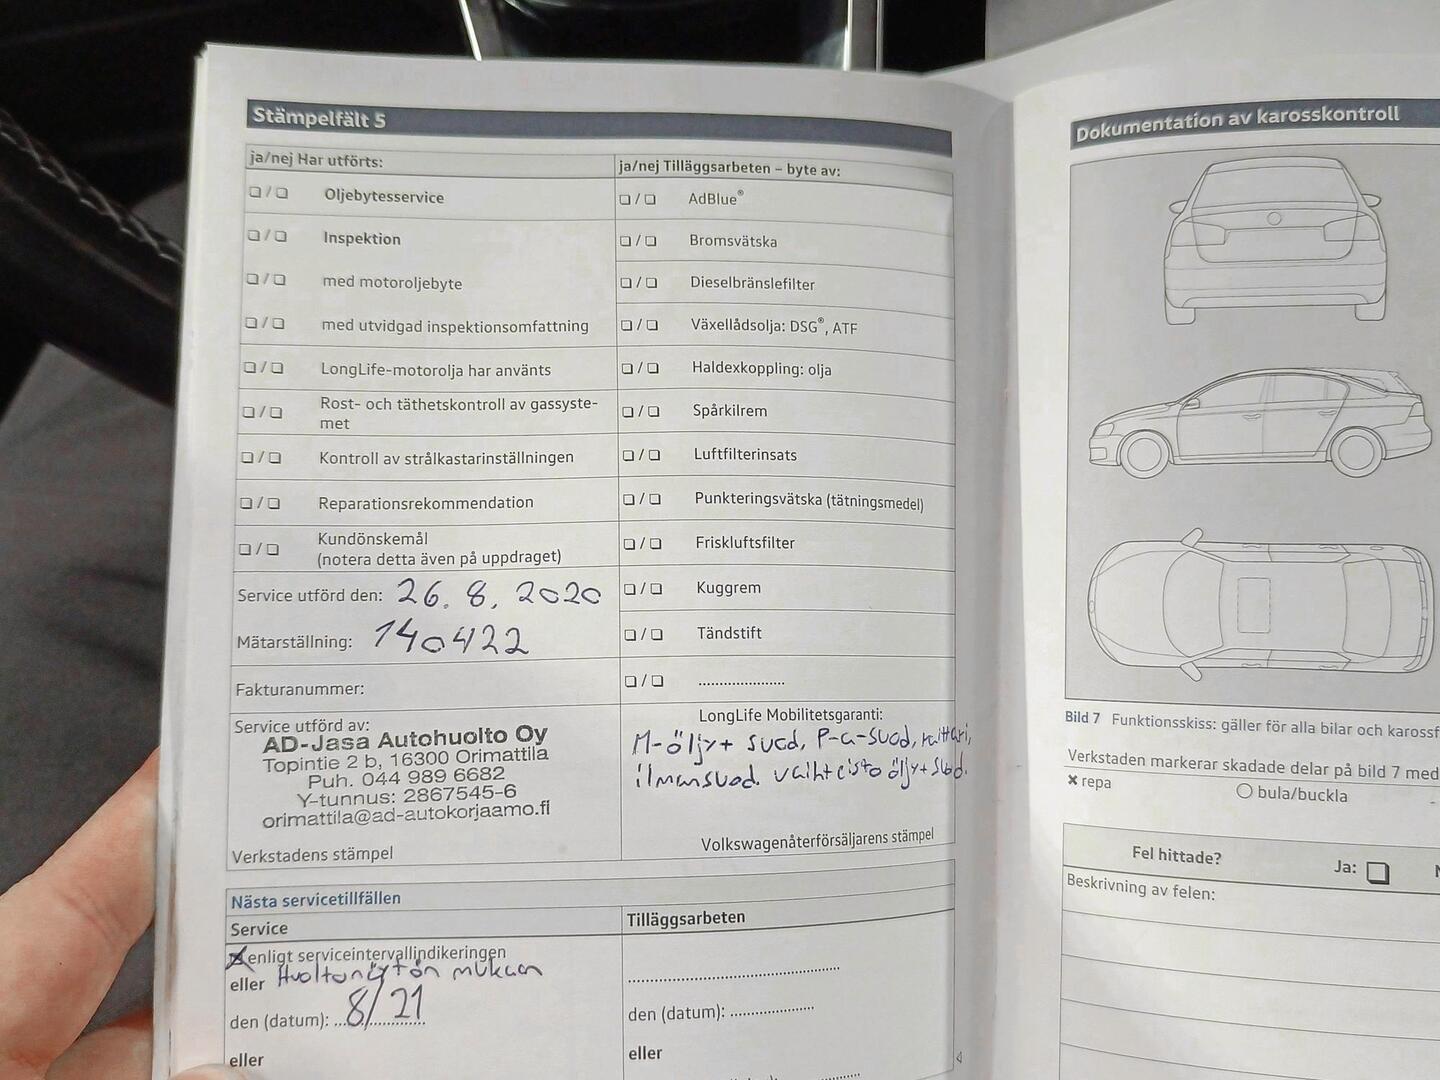 Stämpelfält 5
ja/nej Har utförts:
❏ / ❏ Oljebytesservice
❏ / ❏ Inspektion
❏ / ❏ med motoroljebyte
❏ / ❏ med utvidgad inspektionsomfattning
❏ / ❏ LongLife-motorolja har använts
❏ / ❏ Rost- och täthetskontroll av gassyste-
met
❏ / ❏ Kontroll av strålkastarinställningen
❏ / ❏ Reparationsrekommendation
❏ / ❏ Kundönskemål
(notera detta även på uppdraget)
Service utförd den: 26. 8. 2020
Mätarställning: 140422
Fakturanummer:
Service utförd av:
AD-Jasa Autohuolto Oy
Topintie 2 b, 16300 Orimattila
Puh. 044 989 6682
Y-tunnus: 2867545-6
orimattila@ad-autokorjaamo.fi
Verkstadens stämpel
ja/nej Tilläggsarbeten – byte av:
❏ / ❏ AdBlue®
❏ / ❏ Bromsvätska
❏ / ❏ Dieselbränslefilter
❏ / ❏ Växellådsolja: DSG®, ATF
❏ / ❏ Haldexkoppling: olja
❏ / ❏ Spårkilrem
❏ / ❏ Luftfilterinsats
❏ / ❏ Punkteringsvätska (tätningsmedel)
❏ / ❏ Friskluftsfilter
❏ / ❏ Kuggrem
❏ / ❏ Tändstift
❏ / ❏ .....................
LongLife Mobilitetsgaranti:
M-öljy+ suod, P-a-suod, raittari,
ilmansuod. vaihteisto öljy+suod.
Volkswagenåterförsäljarens stämpel
Nästa servicetillfällen
Service
enligt serviceintervallindikeringen
eller Huoltonäytön mukaan
den (datum): 8/21
eller
Tilläggsarbeten
den (datum): .....................
eller
Dokumentation av karosskontroll
Bild 7 Funktionsskiss: gäller för alla bilar och karossf
Verkstaden markerar skadade delar på bild 7 med
✖ repa
○ bula/buckla
Fel hittade?
Ja: ❏
Beskrivning av felen: